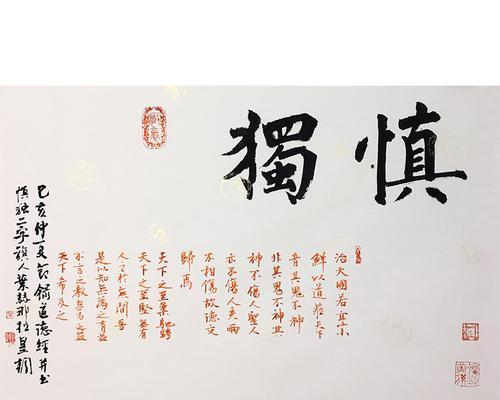 慎獨
治大國若烹小
鮮以道莅天下
者其鬼不神
非其鬼不神其
神不傷人聖人
亦不傷人夫兩
不相傷故德交
歸焉
天下之至柔馳騁
天下之至堅無有
入於無間吾
是以知無為之有益
不言之教無為之益
天下希及之
己亥仲夏節錄道德經并书
慎独二字旗人葉赫那拉